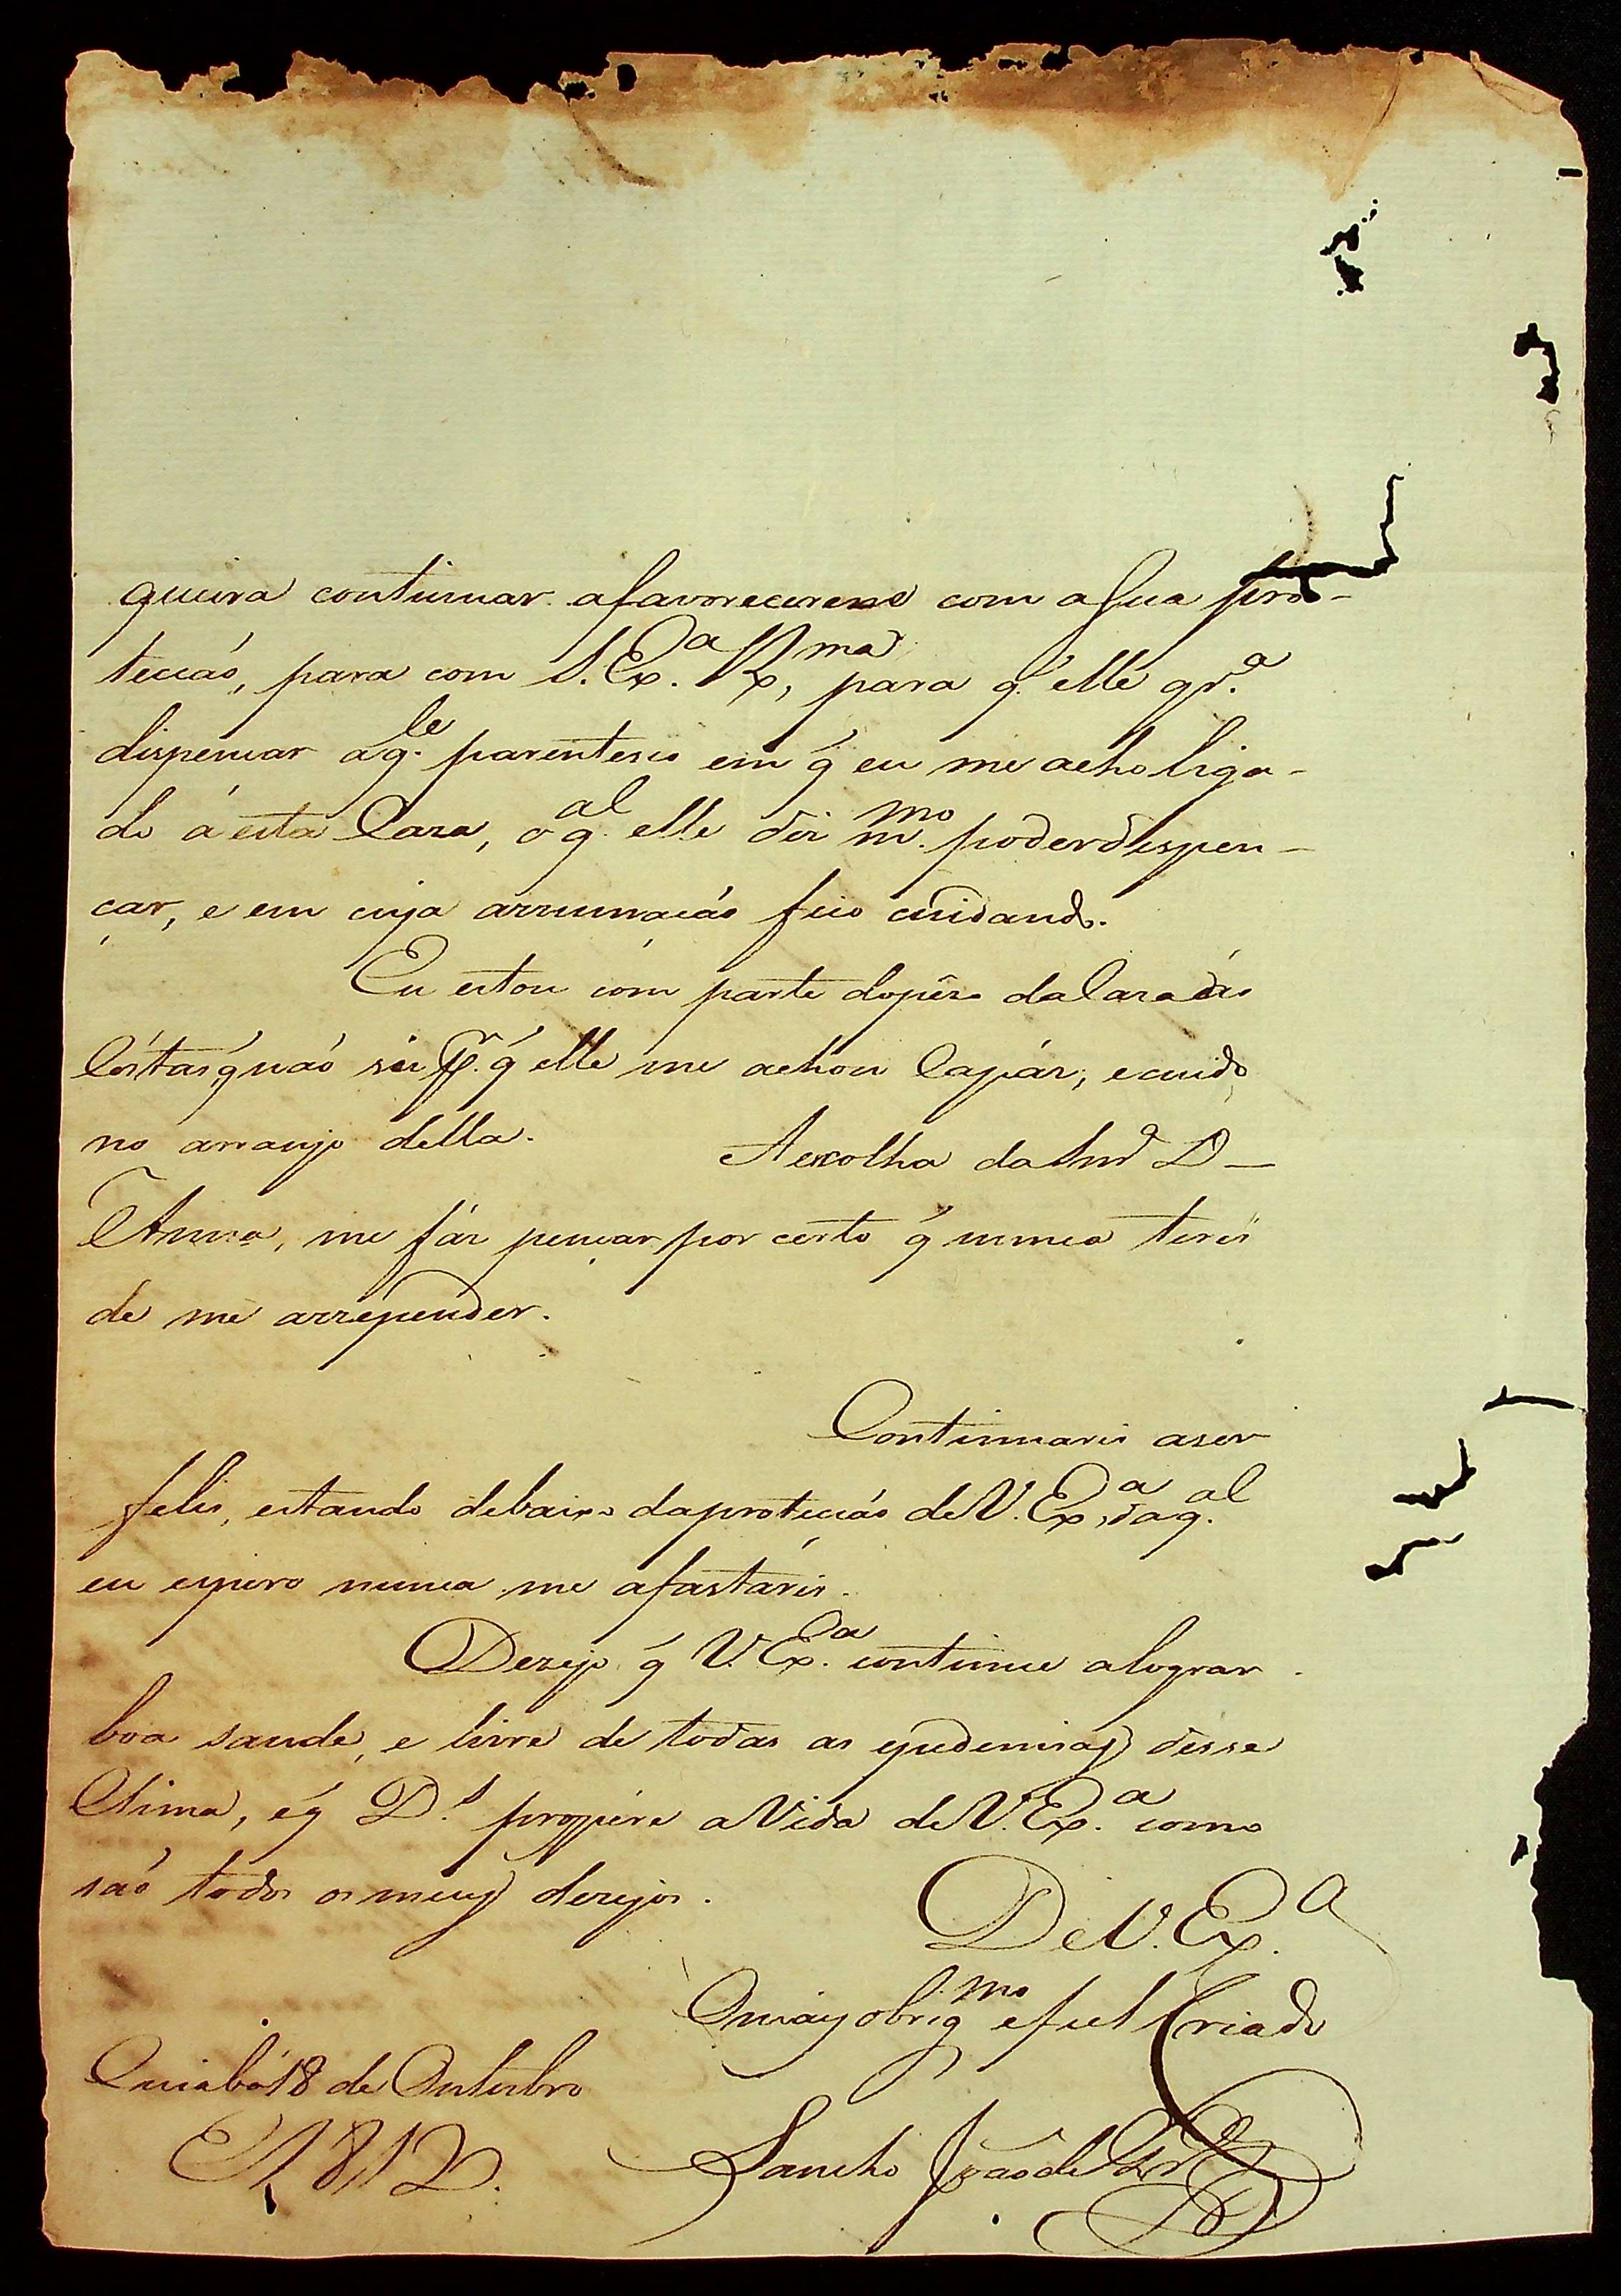 queira continuar afavorecereme com aSua pro-
tecçaó, para com S. Ex.ª R.ma, para q' elle qr.ª
dispençar aq.le parentesco em q' eu me acho liga-
do á esta Caza, o q.al elle diz m.mo poderdispen-
çar, e em cuja arrumaçaó fico cuidando.
Eu estou com parte dopêzo daCaza ás
Cóstas, q' naó sei p.r q' elle me achou Capáz, ecuido
no arranjo della. Aescolha daSnrª D
Anna, me fáz pençar por certo q' nunca terei
de me arrepender.
Continuarei aser
felis, estando debaixo daprotecçaó deV. Ex.ª, da q.al
eu espero nunca me afastárei.
Dezejo q' V. Ex.ª continue alograr
boa saude, e livre de todas as epedemias desse
Clima, e q' D.s prospére aVida deV. Ex.ª como
saó todos os meus dezejos.
DeV. Ex.ª
Omáyobrig.mo efiel Criado
Cuiabá 18 de Outubro
1812.
Sancho Joaõ de